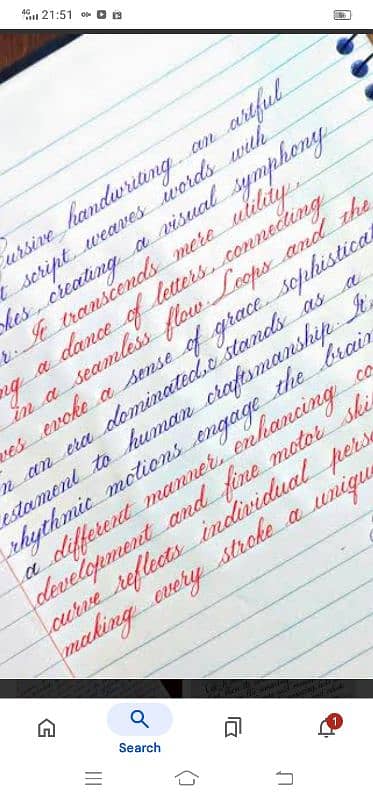 21:51
ursive handwriting an artful
script, weaves words with
okes, creating a visual symphony
r. It transcends mere utility,
ng a dance of letters, connecting
in a seamless flow. Loops and the
ves evoke a sense of grace, sophisticat
n an era dominated, stands as a
estament to human craftsmanship. It
rhythmic motions engage the brain
a different manner, enhancing co
development and fine motor skil
curve reflects individual perso
making every stroke a unique
1
Search